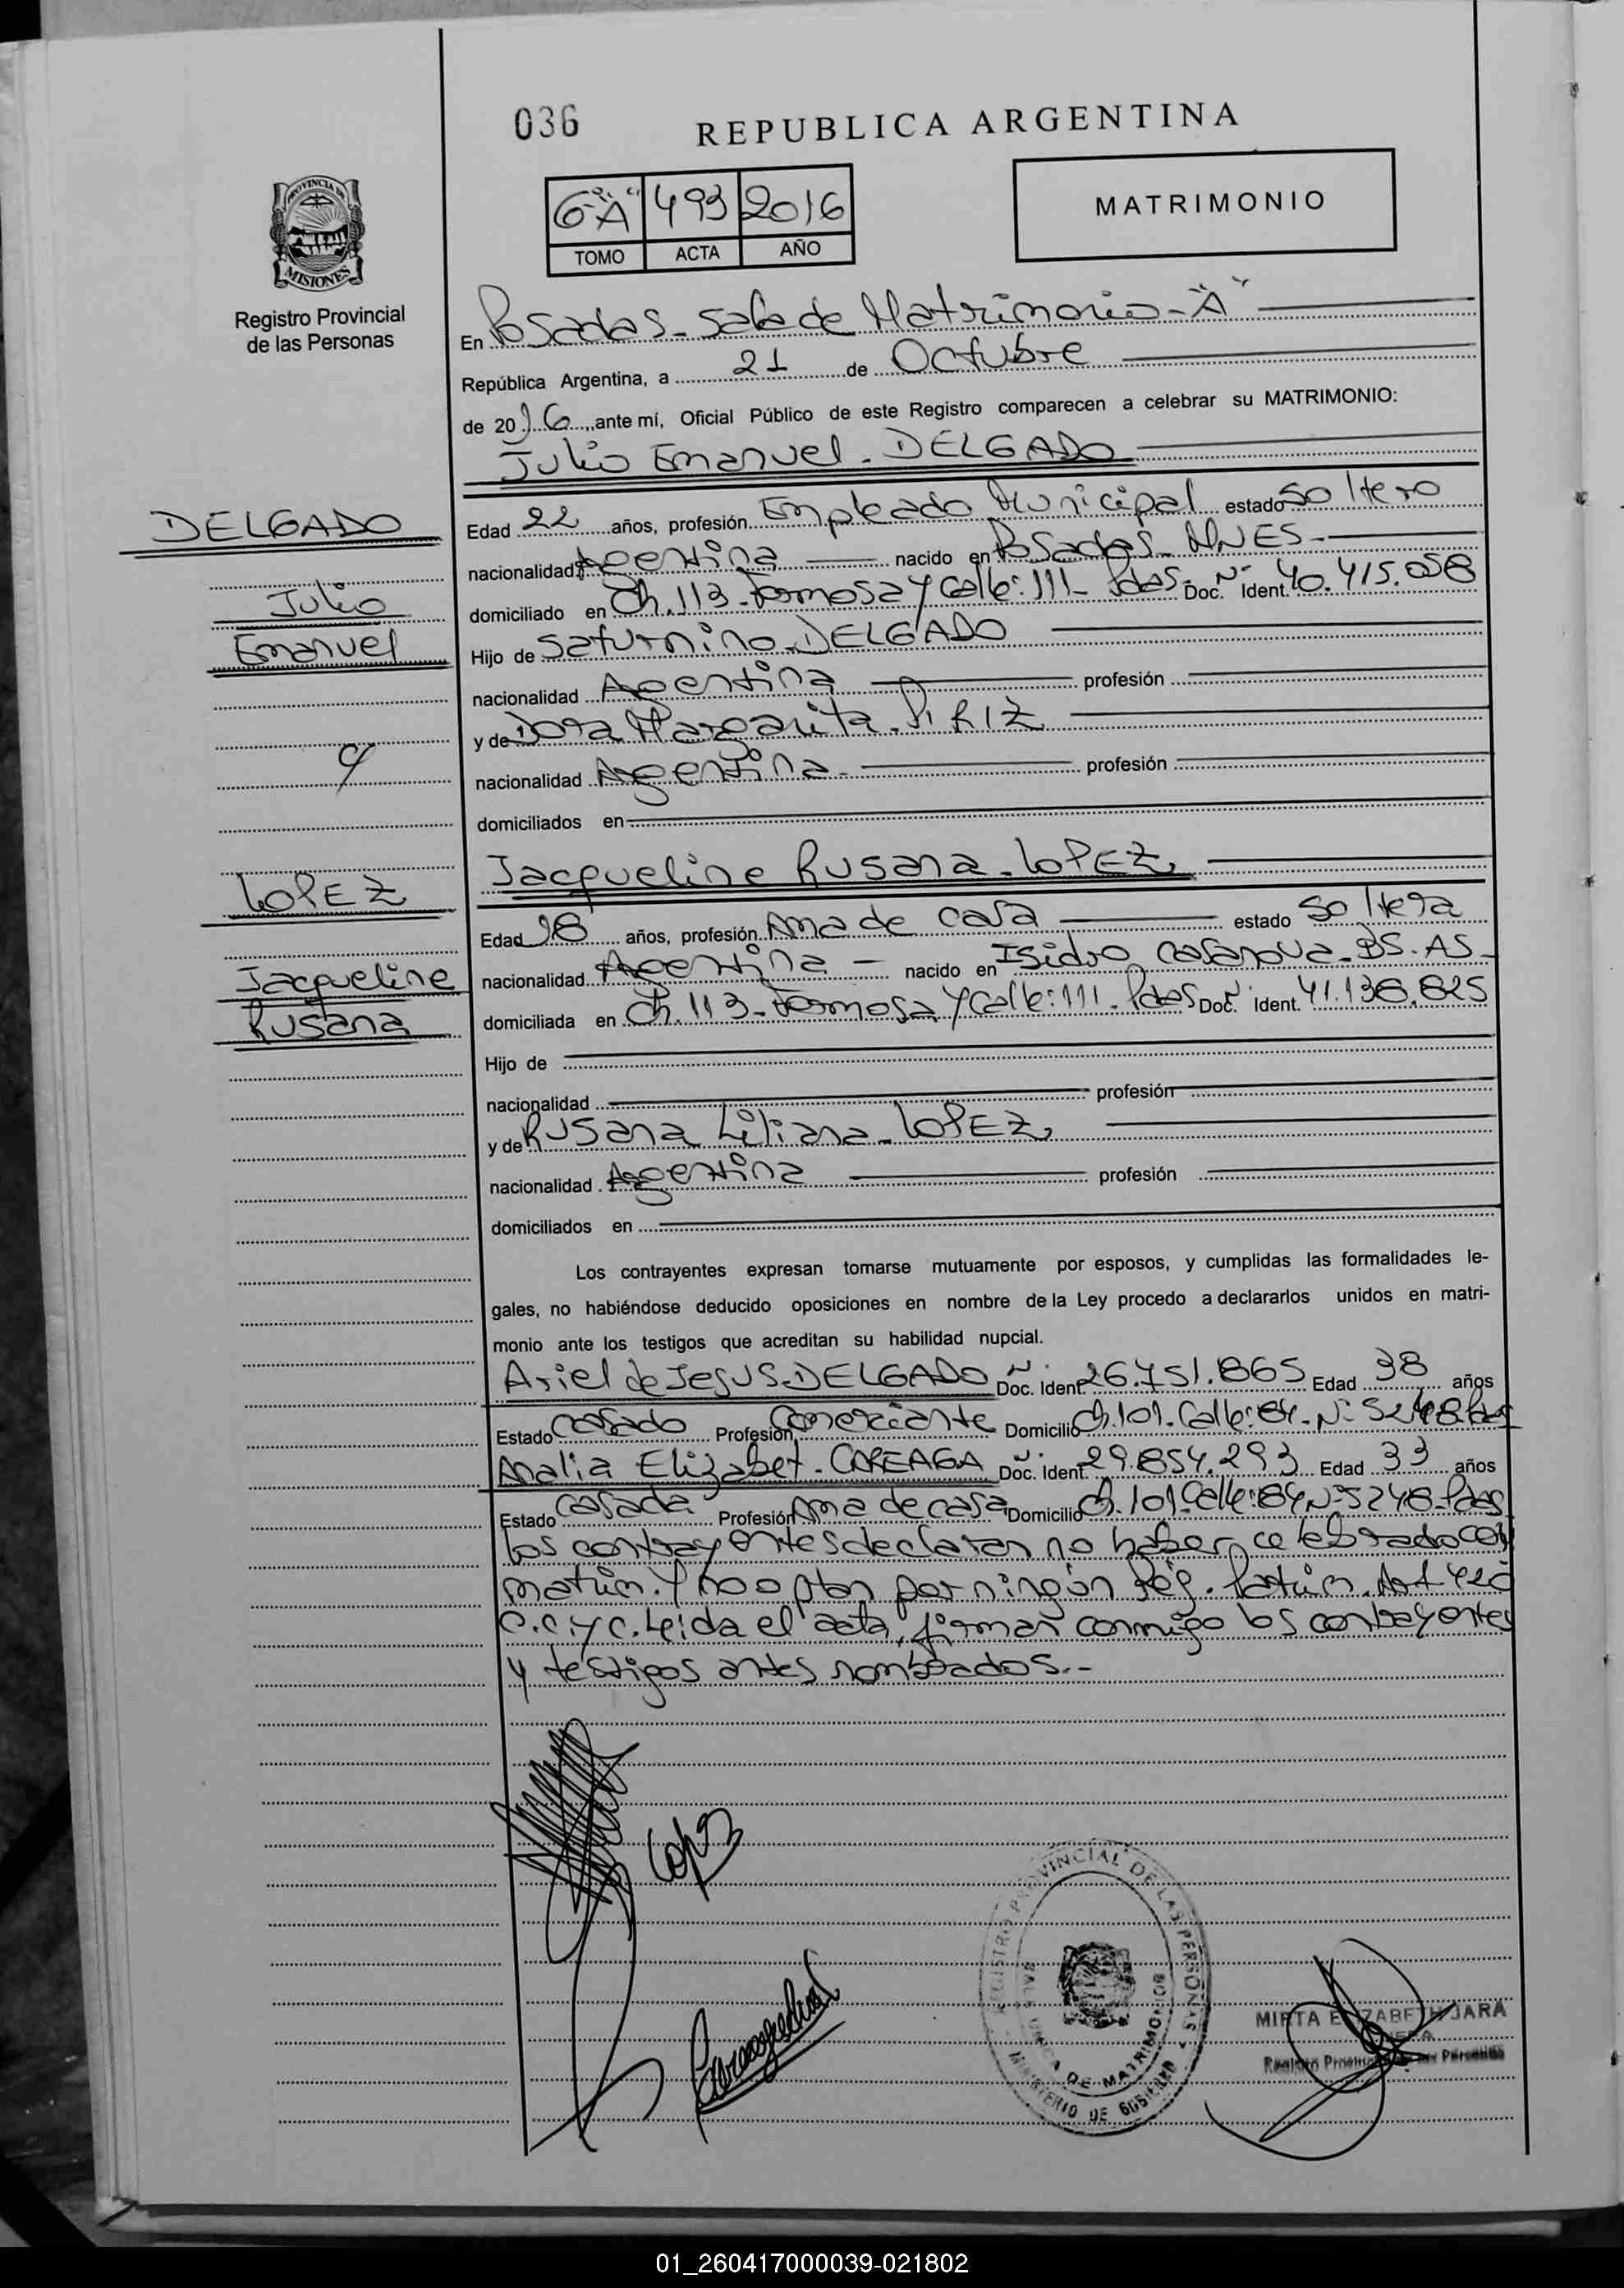 036
REPUBLICA ARGENTINA
PROVINCIA DE
MISIONES
Registro Provincial
de las Personas
6º "A" 493 2016
TOMO ACTA AÑO
MATRIMONIO
En Posadas - Sala de Matrimonio - "A"
República Argentina, a 21 de Octubre
de 2016, ante mí, Oficial Público de este Registro comparecen a celebrar su MATRIMONIO:
Julio Emanuel - DELGADO
DELGADO
Julio
Emanuel
Edad 22 años, profesión Empleado Municipal estado soltero
nacionalidad Argentina nacido en Posadas - MNES -
domiciliado en Ch. 113 - Formosa y Calle: 111 - Pdas - Doc. Nº Ident. 40.415.058
Hijo de Saturnino - DELGADO
nacionalidad Argentina profesión
y de Dora Margarita - PIRIZ
nacionalidad Argentina - profesión
domiciliados en
y
LOPEZ
Jacqueline
Rusana
Jacqueline Rusana - LOPEZ
Edad 18 años, profesión Ama de casa estado soltera
nacionalidad Argentina - nacido en Isidro Casanova - BS. AS -
domiciliada en Ch. 113 - Formosa y Calle: 111 - Pdas - Doc. Nº Ident. 41.138.825
Hijo de
nacionalidad profesión
y de Rusana Liliana - LOPEZ
nacionalidad Argentina profesión
domiciliados en
Los contrayentes expresan tomarse mutuamente por esposos, y cumplidas las formalidades le-
gales, no habiéndose deducido oposiciones en nombre de la Ley procedo a declararlos unidos en matri-
monio ante los testigos que acreditan su habilidad nupcial.
Ariel de Jesus - DELGADO Doc. Nº Ident. 26.751.865 Edad 38 años
Estado Casado Profesión Comerciante Domicilio Ch. 101 - Calle: 84 - Nº 5248 - Pdas
Analia Elizabet - CAREAGA Doc. Nº Ident. 29.854.293 Edad 33 años
Estado Casada Profesión Ama de casa Domicilio Ch. 101 - Calle: 84 Nº 5248 - Pdas
Los contrayentes declaran no haber celebrado con
matrim. y no optan por ningún Rég. Patrim. Art 420
C.C. y C. Leida el acta, firman conmigo los contrayentes
y testigos antes nombrados.-
Lopez
REGISTRO PROVINCIAL DE LAS PERSONAS
DE MATRIMONIO
MINISTERIO DE GOBIERNO
MIRTA ELIZABETH JARA
01_260417000039-021802